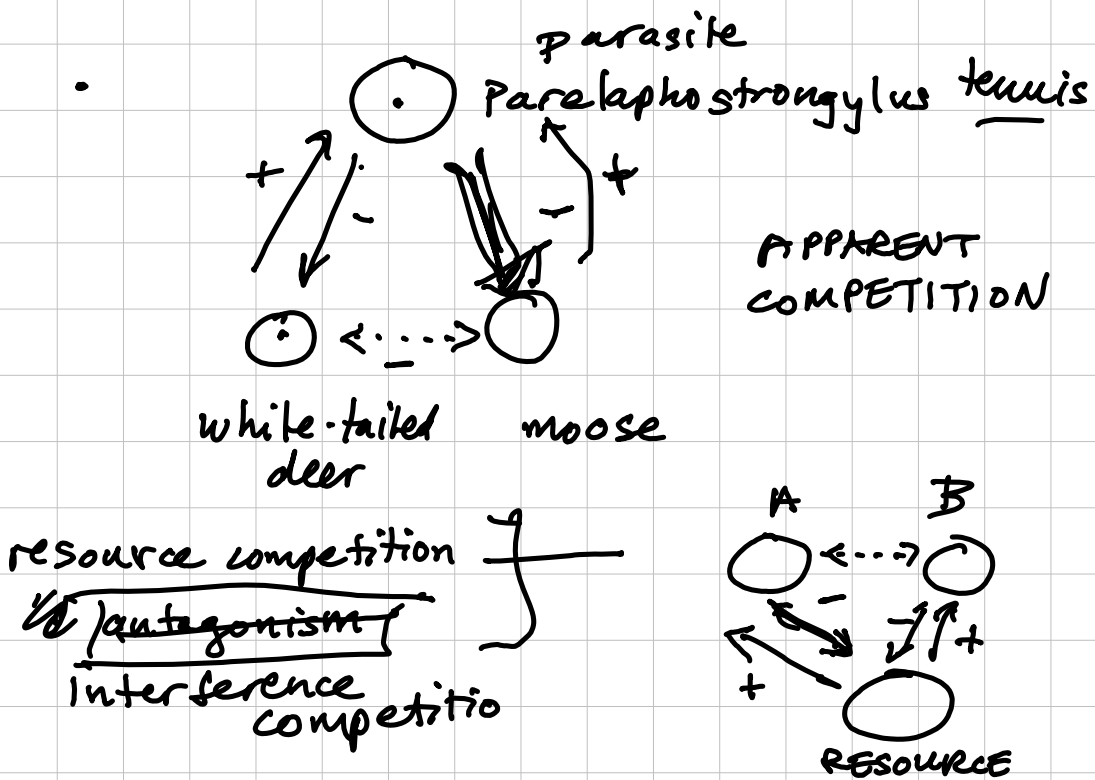 parasite
Parelaphostrongylus tenuis
+
-
-
+
APPARENT
COMPETITION
-
white-tailed
deer
moose
A
B
resource competition
antagonism
Interference
competitio
-
+
-
+
RESOURCE